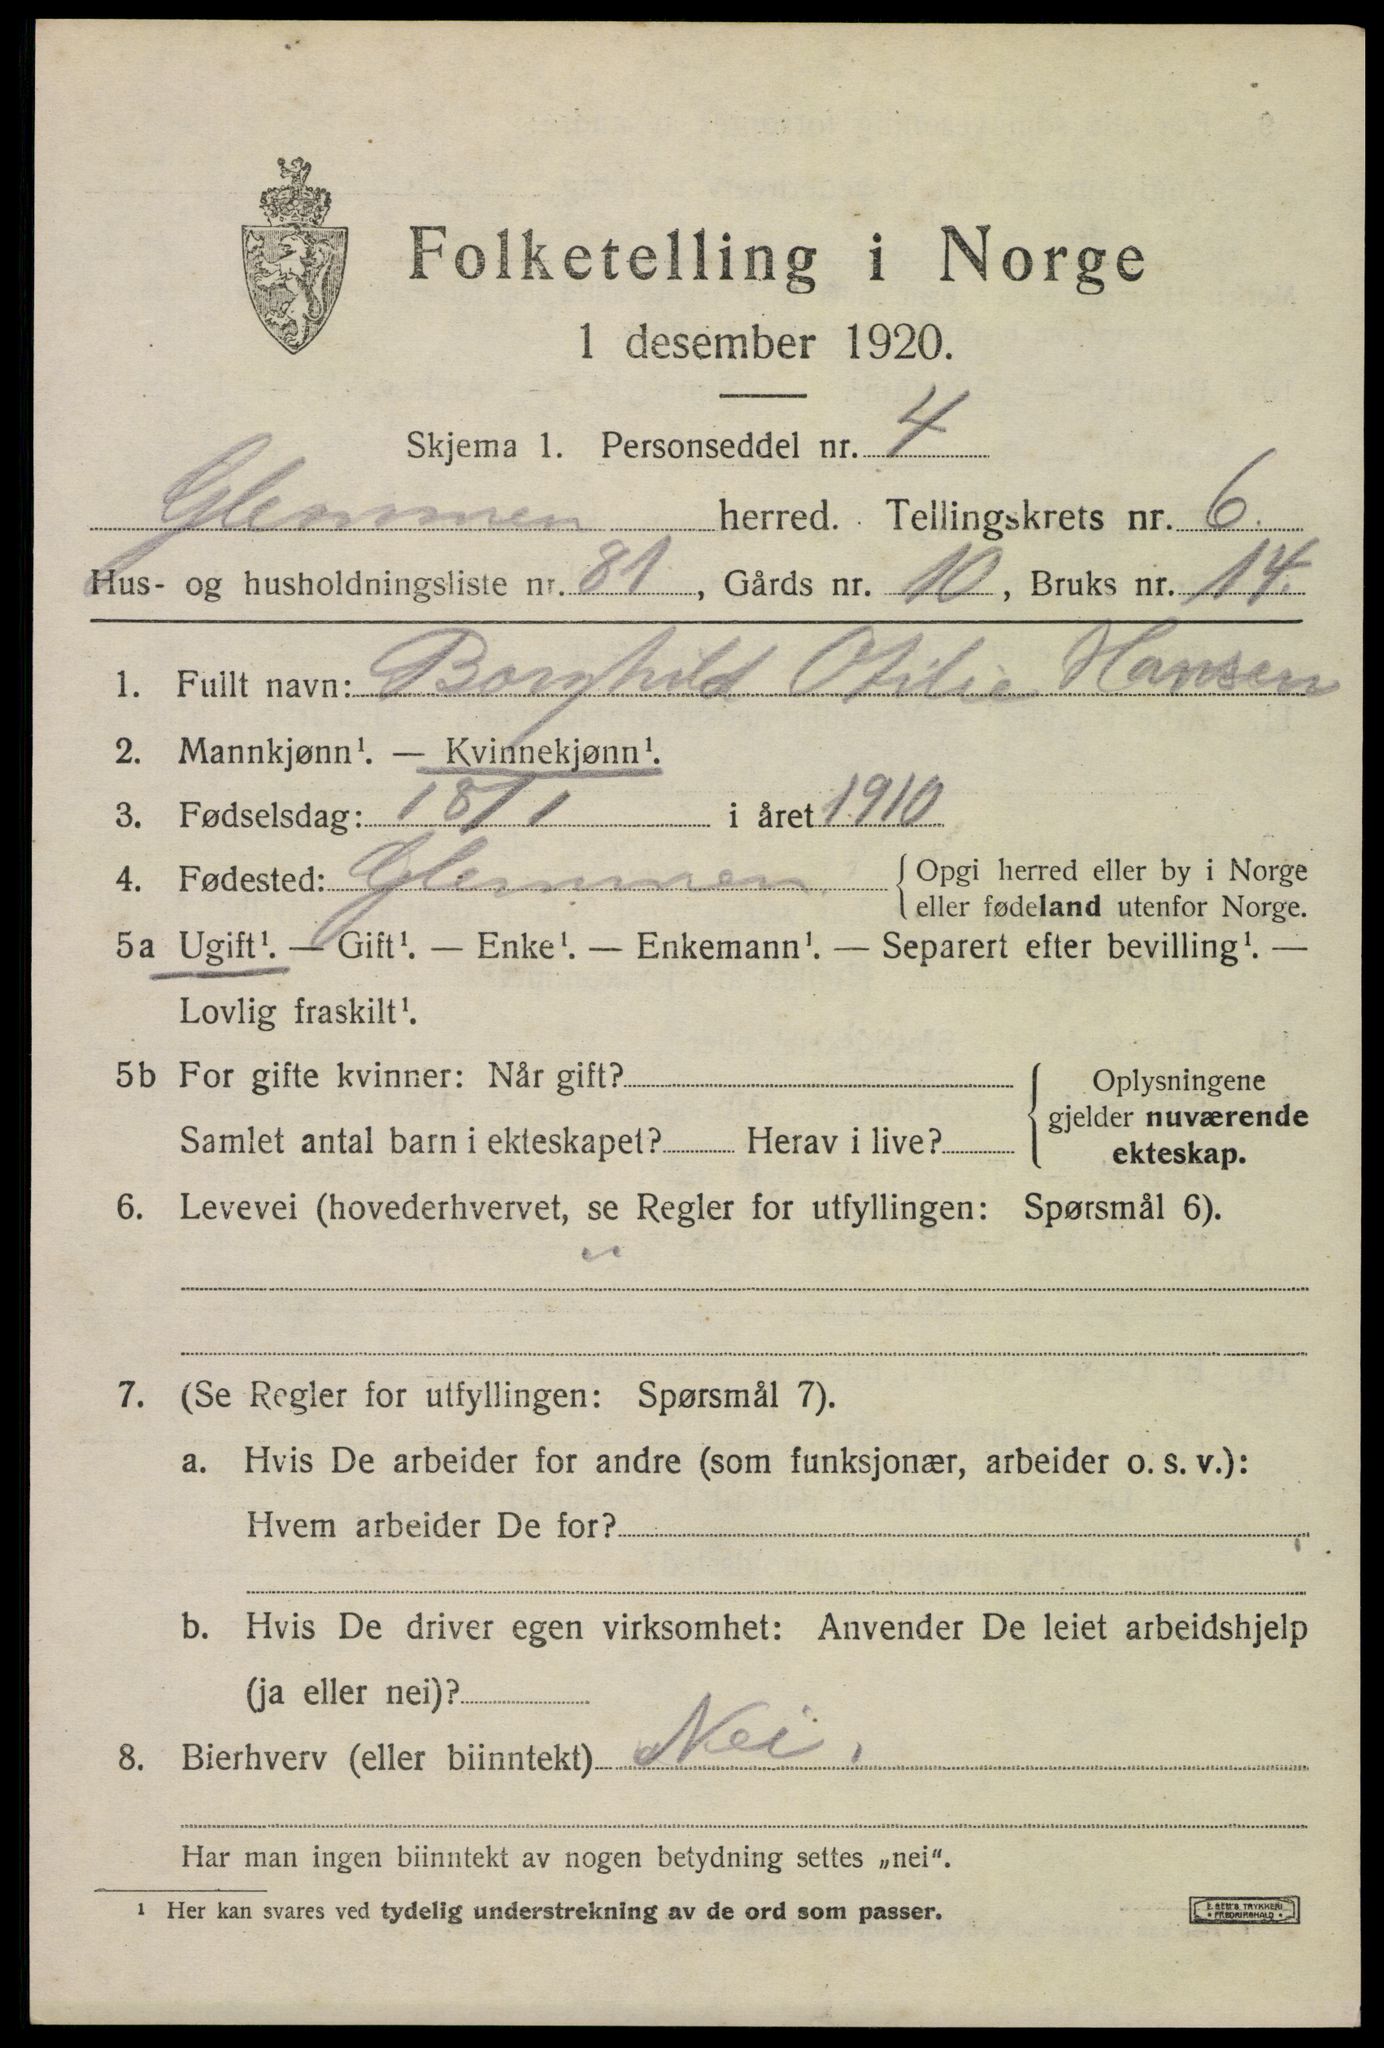 Folketelling i Norge
1 desember 1920.
Skjema 1. Personseddel nr. 4
Glemmen herred. Tellingskrets nr. 6.
Hus- og husholdningsliste nr. 81, Gårds nr. 10, Bruks nr. 14.
1. Fullt navn: Borghild Otilie Hansen
2. Mannkjønn¹. — Kvinnekjønn¹.
3. Fødselsdag: 18/1 i året 1910
4. Fødested: Glemmen. { Opgi herred eller by i Norge
eller fødeland utenfor Norge.
5a Ugift¹. — Gift¹. — Enke¹. — Enkemann¹. — Separert efter bevilling¹. —
Lovlig fraskilt¹.
5b For gifte kvinner: Når gift? { Oplysningene
gjelder nuværende
Samlet antal barn i ekteskapet? Herav i live?
ekteskap.
6. Levevei (hovederhvervet, se Regler for utfyllingen: Spørsmål 6).
"
7. (Se Regler for utfyllingen: Spørsmål 7).
a. Hvis De arbeider for andre (som funksjonær, arbeider o. s. v.):
Hvem arbeider De for?
b. Hvis De driver egen virksomhet: Anvender De leiet arbeidshjelp
(ja eller nei)?
8. Bierhverv (eller biinntekt) Nei.
Har man ingen biinntekt av nogen betydning settes „nei".
¹ Her kan svares ved tydelig understrekning av de ord som passer.
E. SEM'S TRYKKERI
* FREDRIKSHALD *